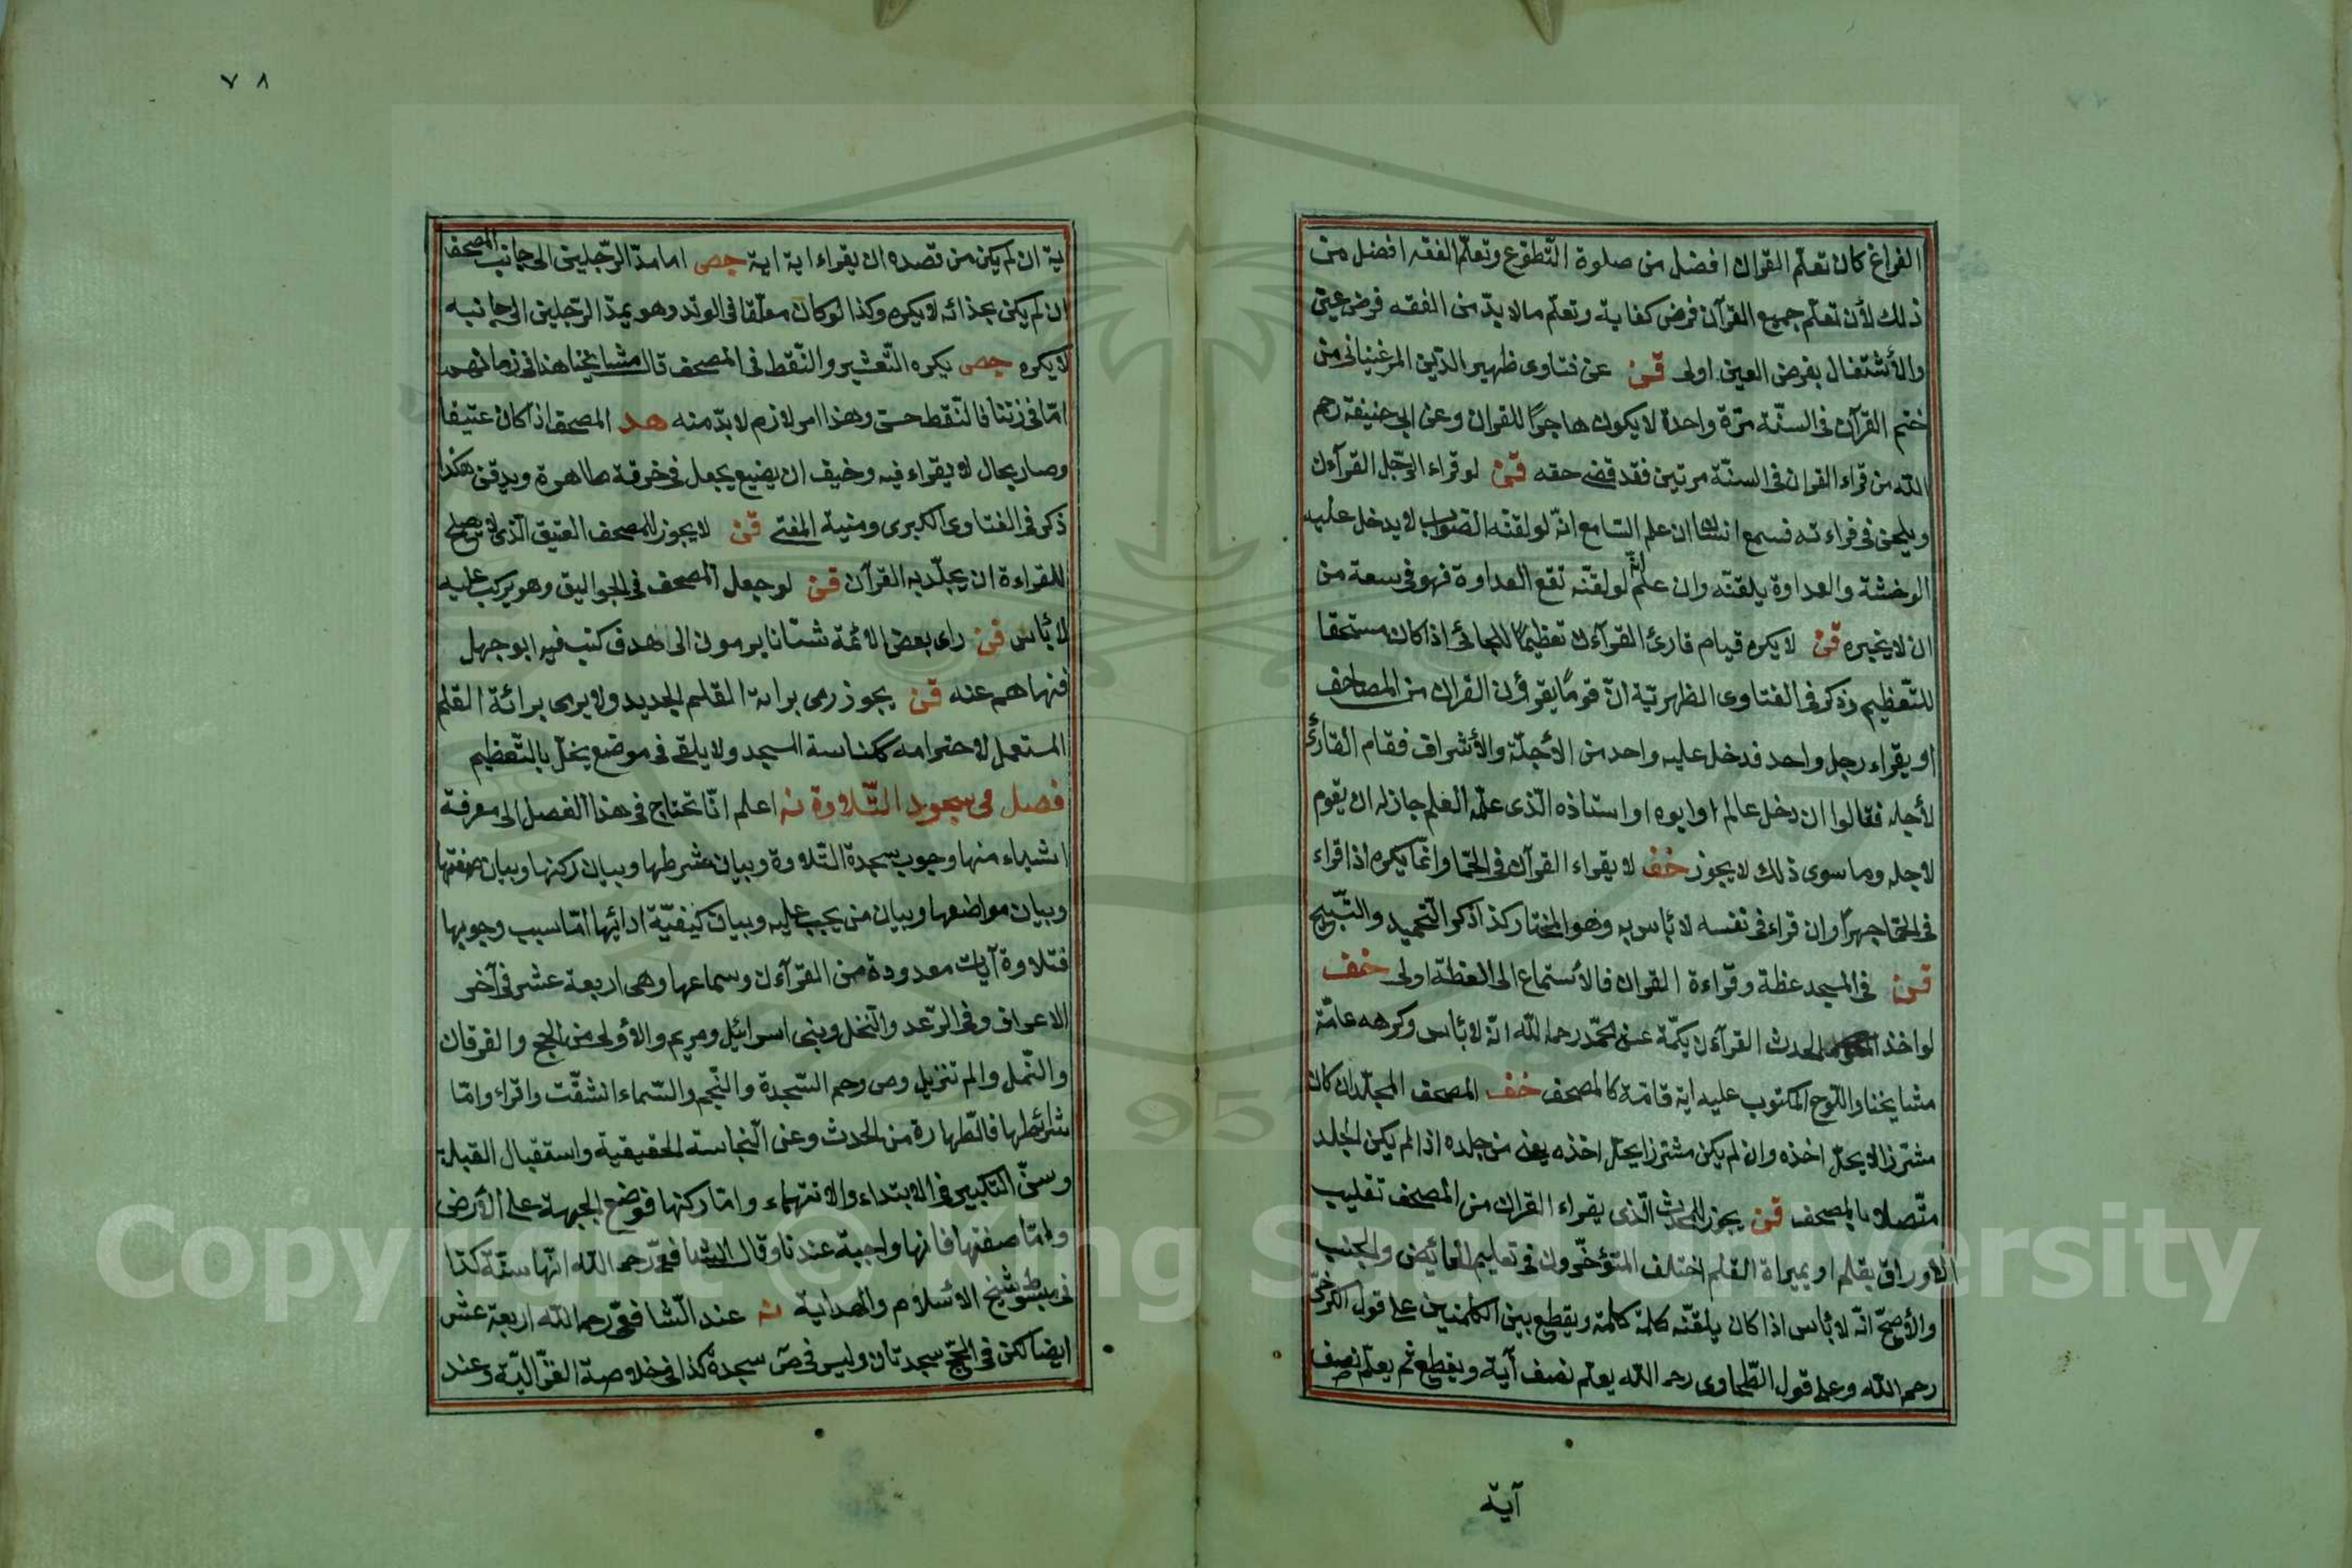 الفراغ كان تعلّم القرآن افضل من صلوة التّطوّع وتعلّم الفقه افضل من
ذلك لأن تعلّم جميع القرآن فرض كفاية وتعلّم مالا بدّ من الفقه فرض عين
والأشتغال بفرض العين اولى قن عن فتاوى ظهير الدّين المرغينانى من
ختم القرآن فى السنّة مرّة واحدة لا يكون هاجرًا للقران وعن ابى حنيفة رحم
الله من قراء القران فى السنّة مرتين فقد قضى حقه قن لو قراء الرّجل القرآن
ويلحن فى قراءته فسمع انسان ان علم السّامع انّه لو لقّنه الصّواب لا يدخل عليه
الوحشة والعداوة يلقّنه وان علم انّه لو لقّنه تقع العداوة فهو فى سعة من
ان لا يخبره قن لا يكره قيام قارئ القرآن تعظيمًا للجائى اذا كان مستحقا
للتّعظيم وذكر فى الفتاوى الظهريّة انّ قومًا يقرؤن القران من المصاحف
او يقراء رجل واحد فدخل عليه واحد من الأجلّة والأشراف فقام القارئ
لأجله فقالوا ان دخل عالم او ابوه او استاذه الّذى علّمه العلم جاز له ان يقوم
لاجله وما سوى ذلك لا يجوز خف لا يقراء القرآن فى الحمّا وانّما يكره اذا قراء
فى الحمّا جهرًا وان قراء فى نفسه لا بأس به وهو المختار كذا ذكر التّحميد والتّسبيح
قن فى المسجد عظة وقراءة القران فالأستماع الى العظة اولى خف
لو اخذ المحدث القرآن بكمّه عن محمّد رحمه الله انّه لا بأس وكرهه عامّة
مشايخنا واللّوح المكتوب عليه اية تامّة كالمصحف خف المصحف المجلّد ان كان
مشرّزا لا يحلّ اخذه وان لم يكن مشرّزا يحلّ اخذه يعنى من جلده اذا لم يكن الجلد
متّصلا بالمصحف قن يجوز للمحدث الّذى يقراء القران من المصحف تقليب
الأوراق بقلم او بمبراة القلم اختلف المتؤخّرون فى تعليم الحائض والجنب
والأصحّ انّه لا بأس اذا كان يلقّنه كلمة كلمة ويقطع بين الكلمتين على قول الكرخى
رحمه الله وعلى قول الطّحاوى رحمه الله يعلّم نصف آية ويقطع ثم يعلّم نصف
آية
٧٨
ية ان لم يكن من قصده ان يقراء اية اية جص اما مدّ الرّجلين الى جانب المصحف
ان لم يكن بحذائه لا يكره وكذا لو كان معلّقا فى الوتد وهو يمدّ الرّجلين الى جانبه
لا يكره جص يكره التّعشير والنّقط فى المصحف قال مشايخنا هذا فى زمانهم
امّا فى زمننا فالنّقط حسن وهذا امر لازم لا بدّ منه هد المصحف اذا كان عتيقا
وصار بحال لا يقراء فيه وخيف ان يضيع يجعل فى خرقة طاهرة ويدفن هكذا
ذكر فى الفتاوى الكبرى ومنية المفتى قن لا يجوز للمصحف العتيق الّذى لا يصلح
للقراءة ان يجلّد به القرآن قن لو جعل المصحف فى الجواليق وهو يركب عليه
لا بأس قن راى بعض الائمة شبّانا يرمون الى هدف كتب فيه ابو جهل
فنهاهم عنه قن يجوز رمى براية القلم الجديد ولا يرمى برائة القلم
المستعمل لاحترامه ككناسة المسجد ولا يلقى فى موضع يخلّ بالتّعظيم
فصل فى سجود التّلاوة نه اعلم انّا نحتاج فى هذا الفصل الى معرفة
اشياء منها وجوب سجدة التّلاوة وبيان شرطها وبيان ركنها وبيان صفتها
وبيان مواضعها وبيان من يجب عليه وبيان كيفيّة ادائها امّا سبب وجوبها
فتلاوة آيات معدودة من القرآن وسماعها وهى اربعة عشر فى آخر
الاعراف وفى الرّعد والنّحل وبنى اسرائيل ومريم والأولى من الحج والفرقان
والنّمل والم تنزيل وص وحم السّجدة والنّجم والسّماء انشقّت واقراء وامّا
شرائطها فالطّهارة من الحدث وعن النّجاسة الحقيقية واستقبال القبلة
وسنّ التكبير فى الابتداء والانتهاء وامّا ركنها فوضع الجبهة على الأرض
وامّا صفتها فانها واجبة عندنا وقال الشافعىّ رحمه الله انّها سنّة كذا
فى مبسوط شيخ الأسلام والهداية نه عند الشّافعىّ رحمه الله اربعة عشر
ايضا لكن فى الحجّ سجدتان وليس فى ص سجدة كذا فى خلاصة الغزّاليّة وعند
Copyright © King Saud University